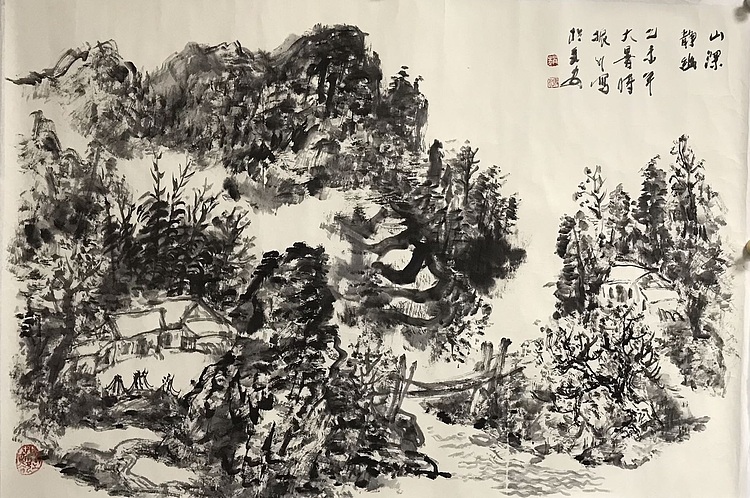 山深
静幽
乙未年
大暑时
振川写
於长安